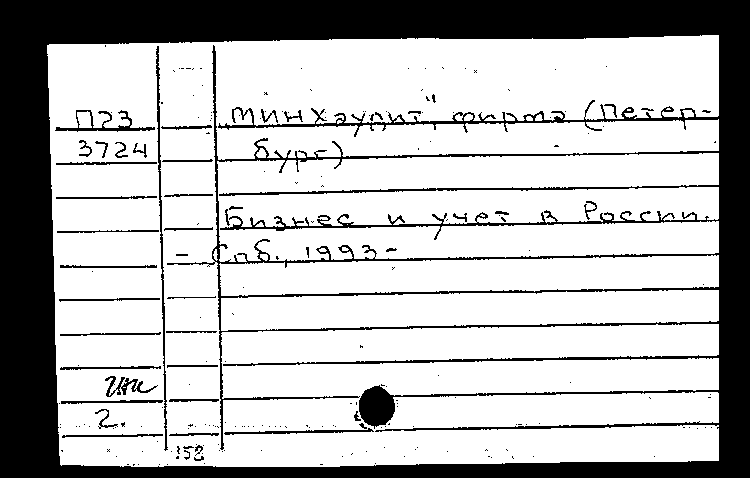 П23 „МИНХаудит", фирма (Петер-
3724 бург)
Бизнес и учет в России.
- Спб., 1993-
2.
158